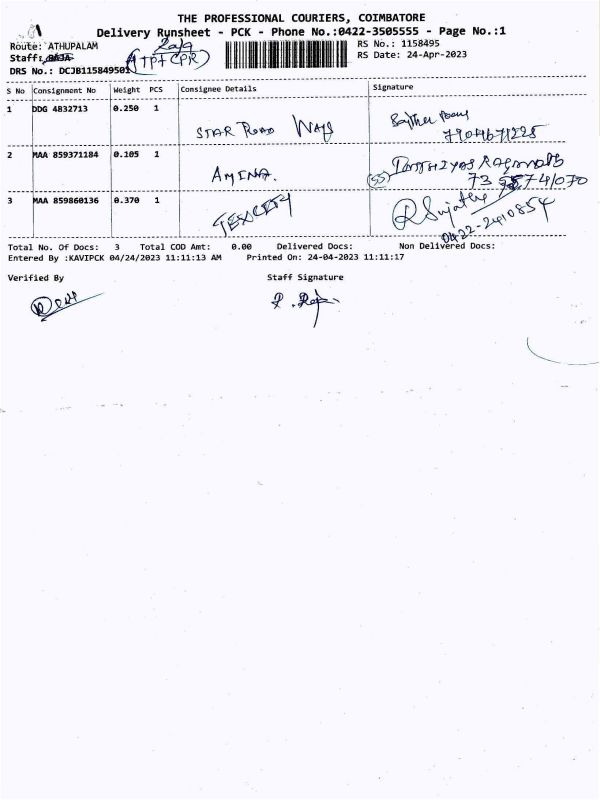 THE PROFESSIONAL COURIERS, COIMBATORE
Delivery Runsheet - PCK - Phone No.:0422-3505555 - Page No.:1
Route: ATHUPALAM
RS No.: 1158495
Staff: RAJA Raja
RS Date: 24-Apr-2023
DRS No.: DCJB115849501
(TPT CPR)
S No Consignment No Weight PCS Consignee Details Signature
1 DDG 4832713 0.250 1
STAR ROAD WAYS
2 MAA 859371184 0.105 1
AMINA.
3 MAA 859860136 0.370 1
Sujatha
0422-2410854
Total No. Of Docs: 3 Total COD Amt: 0.00 Delivered Docs: Non Delivered Docs:
Entered By :KAVIPCK 04/24/2023 11:11:13 AM Printed On: 24-04-2023 11:11:17
Verified By Staff Signature